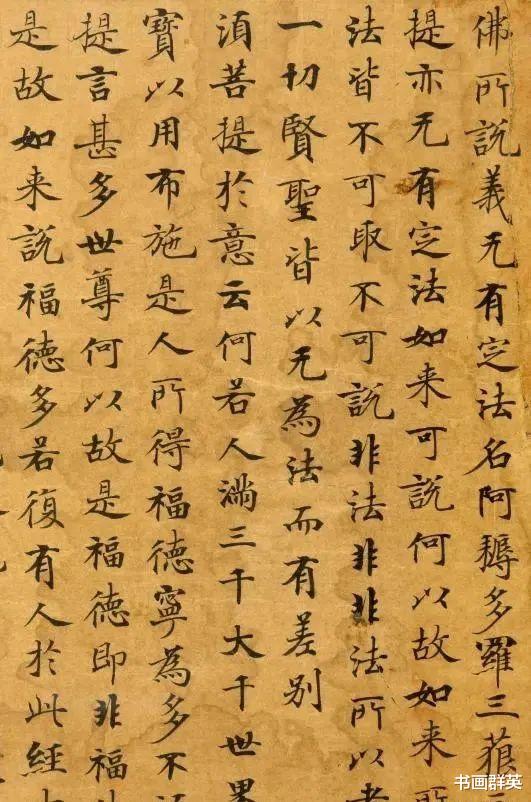 佛所說義无有定法名阿耨多羅三藐三
提亦无有定法如来可說何以故如来所
法皆不可取不可說非法非非法所以者
一切賢聖皆以无為法而有差别
湏菩提於意云何若人滿三千大千世界
寶以用布施是人所得福德寧為多不
提言甚多世尊何以故是福德即非福
是故如来說福德多若復有人於此經
书画群英